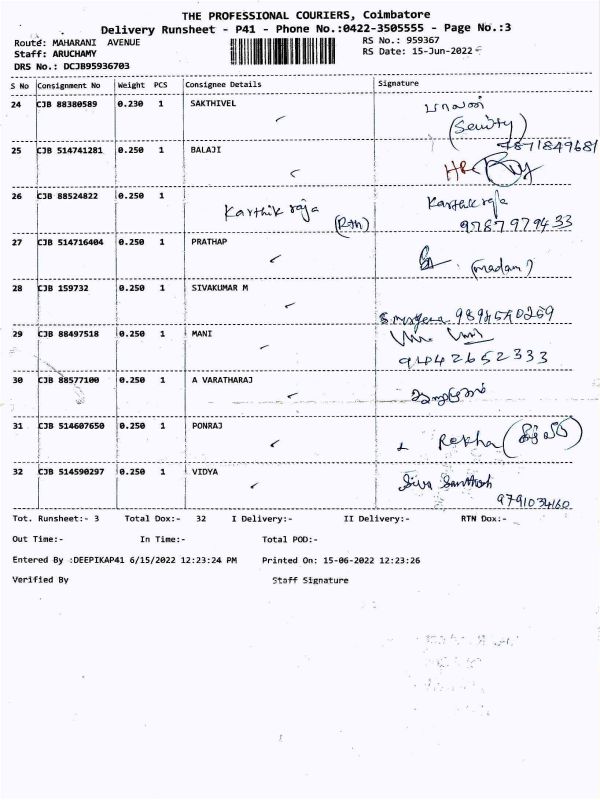 THE PROFESSIONAL COURIERS, Coimbatore
Delivery Runsheet - P41 - Phone No.:0422-3505555 - Page No.:3
Route: MAHARANI AVENUE
RS No.: 959367
Staff: ARUCHAMY
RS Date: 15-Jun-2022
DRS No.: DCJB95936703
S No Consignment No Weight PCS Consignee Details Signature
24 CJB 88380589 0.230 1 SAKTHIVEL
25 CJB 514741281 0.250 1 BALAJI 7871849681
26 CJB 88524822 0.250 1 Karthik raja Karthik raja
9787979433
27 CJB 514716404 0.250 1 PRATHAP (madam)
28 CJB 159732 0.250 1 SIVAKUMAR M
29 CJB 88497518 0.250 1 MANI
9442652333
30 CJB 88577100 0.250 1 A VARATHARAJ
31 CJB 514607650 0.250 1 PONRAJ Rekha
32 CJB 514590297 0.250 1 VIDYA Siva Santhosh
9791034160
Tot. Runsheet:- 3 Total Dox:- 32 I Delivery:- II Delivery:- RTN Dox:-
Out Time:- In Time:- Total POD:-
Entered By :DEEPIKAP41 6/15/2022 12:23:24 PM Printed On: 15-06-2022 12:23:26
Verified By Staff Signature